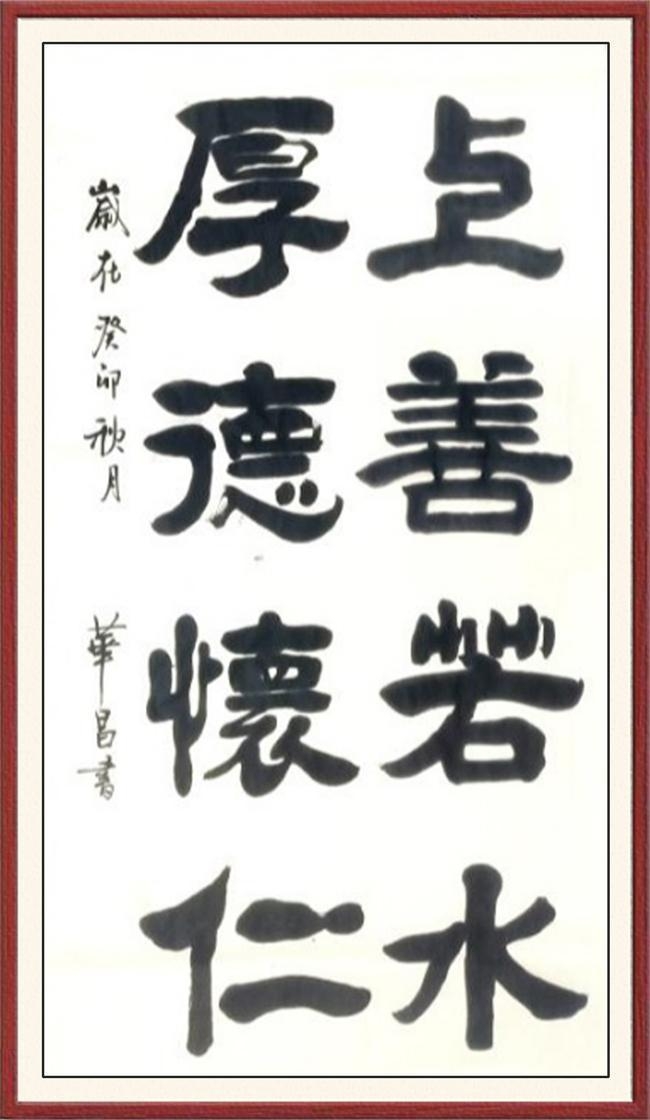 上善若水
厚德懷仁
歲在癸卯秋月 華昌書